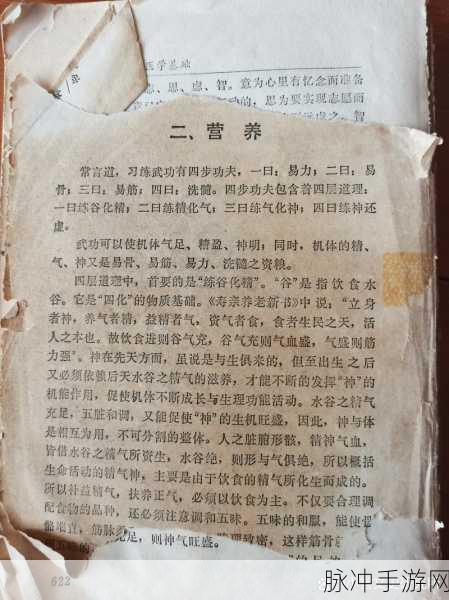 医学基础
志、思、虑、智。意为心里有忆念而准备
的；思为要实现志愿而
虑之。智
二、营 养
常言道，习练武功有四步功夫，一曰：易力；二曰：易
骨；三曰：易筋；四曰：洗髓。四步功夫包含着四层道理：
一曰练谷化精；二曰练精化气；三曰练气化神；四曰练神还
虚。
武功可以使机体气足、精盈、神明；同时，机体的精、
气、神又是易骨、易筋、易力、洗髓之资粮。
四层道理中，首要的是“练谷化精”。“谷”是指饮食水
谷。它是“四化”的物质基础。《寿亲养老新书》中说：“立身
者神，养气者精，益精者气，资气者食，食者生民之天，活
人之本也。故饮食进则谷气充，谷气充则气血盛，气盛则筋
力强”。神在先天方面，虽说是与生俱来的，但至出生之后
又必须依赖后天水谷之精气的滋养，才能不断的发挥“神”的
机能作用，促使机体不断成长与生理功能活动。水谷之精气
充足，五脏和调，又能促使“神”的生机旺盛，因此，神与体
是相互为用，不可分割的整体。人之脏腑形骸，精神气血，
皆借水谷之精气所资生，水谷绝，则形与气俱绝，所以概括
生命活动的精气神，主要是由于饮食的精气所化生而成的。
所以补益精气，扶养正气，必须以饮食为主。不仅要合理调
配食物的品种，还必须注意调和五味。五味的和服，能使骨
骼正直，筋脉
充足，则神气旺盛。 致密，这样筋骨
622
脉冲手游网